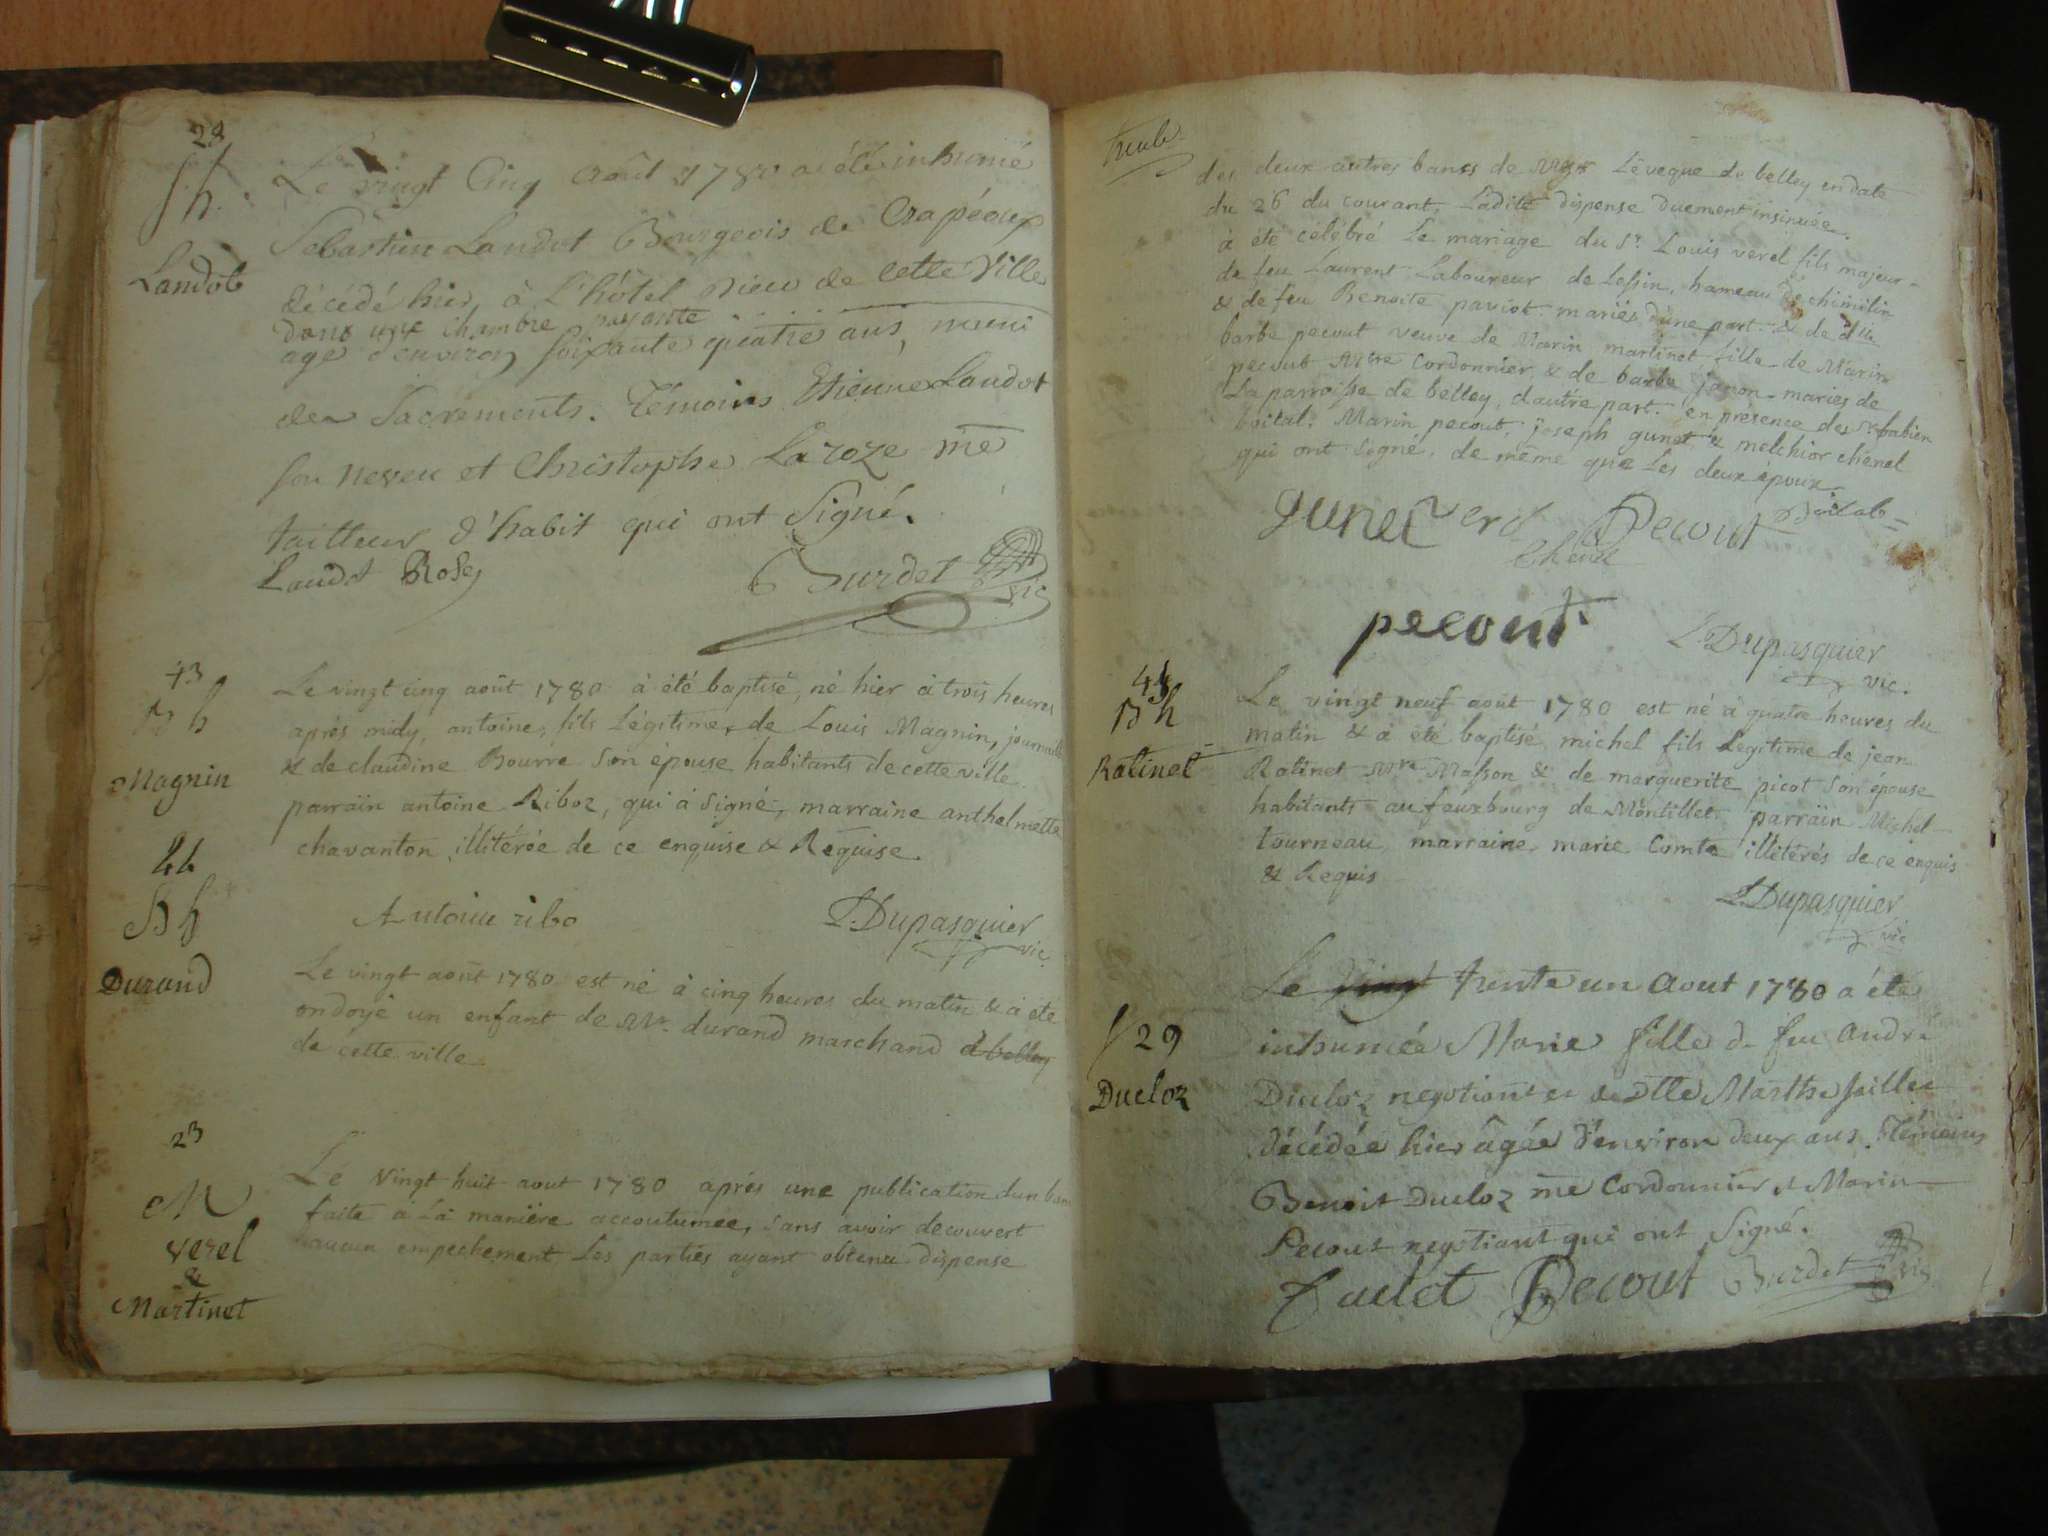 28
Sh.
Landot
Le vingt Cinq Août 1780 a été inhumé
Sébastien Landot Bourgeois de Crapéoux
décédé hier, à l'hôtel Dieu de cette Ville
dans une chambre payante
agé d'environ soixante quatre ans, muni
des Sacrements. Témoins Etienne Landot
son neveu et Christophe Laroze me
tailleur d'habit qui ont Signé.
Landot Rosey
Burdet vic
43
Bh
Magnin
Le vingt cinq août 1780 à été baptisé, né hier à trois heures
après midy, antoine, fils Légitime, de Louis Magnin,
& de claudine Bourre Son épouse habitants de cette ville.
parrain antoine Riboz, qui à signé, marraine anthelmette
chavanton illitérée de ce enquise & Requise.
Antoine ribo
L. Dupasquier
vic.
44
Bh
Durand
Le vingt août 1780 est né à cinq heures du matin & à été
ondoyé un enfant de Mr. durand marchand d belley
de cette ville
23
M
verel
&
Martinet
Le Vingt huit aout 1780 après une publication d'un ban
faite à La manière accoutumée, sans avoir decouvert
aucun empechement Les parties ayant obtenu dispense
des deux autres bancs de Mgr Lévèque de belley en date
du 26 du courant, Ladite dispense Duement insinuée.
à été célébré Le mariage du Sr. Louis verel fils majeur
de feu Laurent Laboureur de Lessin, hameau de chimilin
& de feu Benoite paviot mariés d'une part. & de dlle
barbe pecout veuve de Marin martinet fille de Marin
pecout Mtre Cordonnier & de barbe janon mariés de
La parroisse de belley, d'autre part. en présence des Srs fabien
boital, Marin pecout, joseph gunet & melchior chenel
qui ont signé, de même que Les deux époux.
gunet Verel Pecout Boitab
Chenel
pecout
L. Dupasquier
vic.
45
Bh
Ratinet
Le vingt neuf août 1780 est né à quatre heures du
matin & à été baptisé michel fils Légitime de jean
Ratinet Mtre Masson & de marguerite picot Son épouse
habitants au feuxbourg de Montillet. parrain Michel
tourneau, marraine marie Comte illitérés de ce enquis
& Requis
L. Dupasquier
vic
S 29
Ducloz
Le vingt trente un Aout 1780 a été
inhumée Marie fille de feu André
Ducloz negotiant et de Dlle Marthe
décédée hier âgée d'environ deux ans. Témoins
Benoit Ducloz me Cordonnier et Marin
Pecout negotiant qui ont Signé.
Pecout Burdet vic